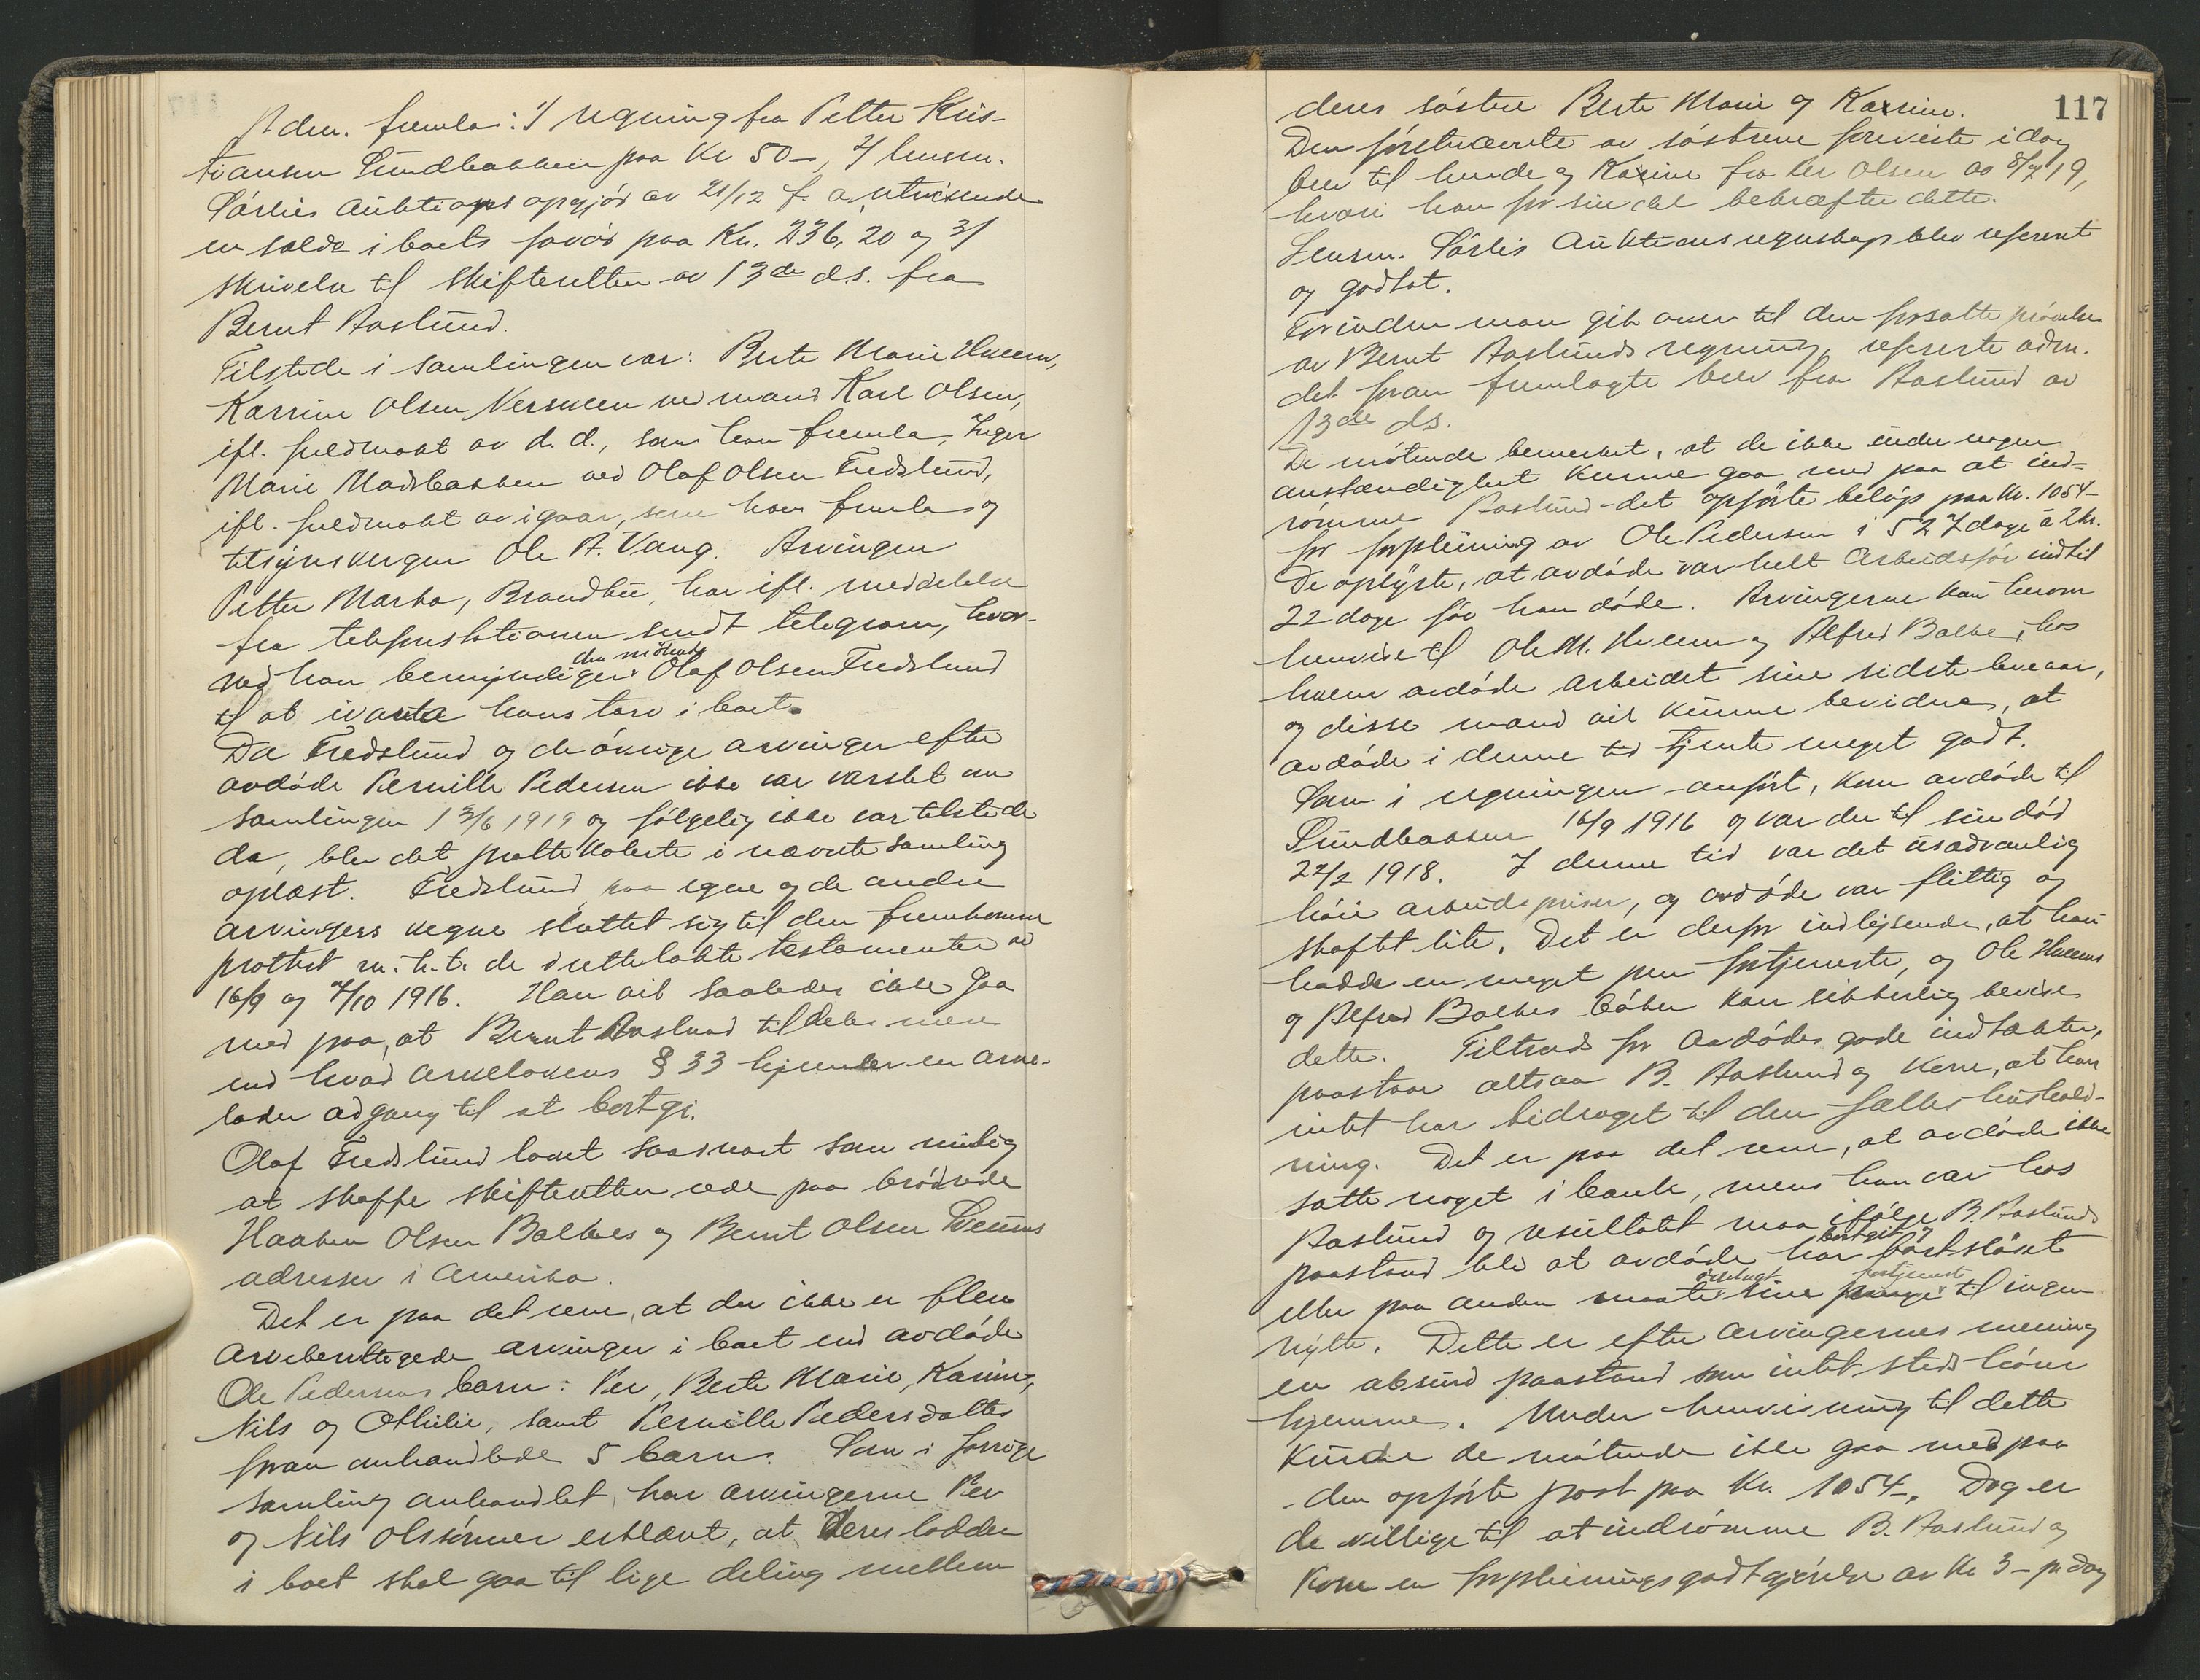 Adm. fremla: 1/ regning fra Petter Kris-
tiansen Sundbakken paa Kr 50-, 2/ lensm.
Sørlies auktions opgjør av 21/12 f. a. utvisende
en saldo i boets favør paa Kr. 236,20 og 3/
skrivelse til skifteretten av 13de d.s. fra
Bernt Aaslund.
Tilstede i samlingen var: Berte Marie Hveem,
Karine Olsen Versveen ved mand Karl Olsen,
ifl. fuldmakt av d. d., som han fremla, Inger
Marie Madsbakken ved Olaf Olsen Fredslund,
ifl. fuldmakt av igaar, som han fremla og
tilsynsvergen Ole A. Vang. Arvingen
Petter Marka, Brandbu, har ifl. meddelelse
fra telefonstationen sendt telegram, hvor-
ved han bemyndiger den møtende Olaf Olsen Fredslund
til at ivareta hans tarv i boet.
Da Fredslund og de øvrige arvinger efter
avdøde Pernille Pedersen ikke var varslet om
samlingen 13/6 1919 og følgelig ikke var tilstede
da, blev det protokolerte i nævnte samling
oplæst. Fredslund paa egne og de andre
arvingers vegne sluttet sig til den fremkomne
protest m. h. t. de i rettelakte testamenter av
16/9 og 7/10 1916. Han vil saaledes ikke gaa
med paa, at Bernt Aaslund tildeles mere
end hvad arvelovens § 33 hjemler en arve-
lader adgang til at bortgi.
Olaf Fredslund lovet saasnart som mulig
at skaffe skifteretten rede paa brødrede
Haaken Olsen Balkes og Bernt Olsen Sveums
adresser i Amerika.
Det er paa det rene, at der ikke er flere
arveberettigede arvinger i boet end avdøde
Ole Pedersens barn: Per, Berte Marie, Karine,
Nils og Othilie, samt Pernille Pedersdatters
foran omhandlede 5 barn. Som i forrige
samling omhandlet, har arvingerne Per
og Nils Olssønner erklært, at deres lodder
i boet skal gaa til lige deling mellem
117
deres søstre Berte Marie og Karine.
Den førstnævnte av søstrene foreviste idag
brev til hende og Karine fra Per Olsen av 8/7 19,
hvori han for sin del bekræfter dette.
Lensm. Sørlis auktionsregnskap blev referert
og godtat.
Forinden man gik over til den forsatte prøvelse
av Bernt Aaslunds regning, refererte adm.
det foran fremlagte brev fra Aaslund av
13de ds.
De møtende bemerket, at de ikke under nogen
omstændighet kunne gaa med paa at ind-
rømme Aaslund det opførte beløp paa Kr. 1054-
for forpleining av Ole Pedersen i 527 dage à 2 kr.
De oplyste, at avdøde var helt arbeidsfør indtil
22 dage før han døde. Arvingerne kan herom
henvise til Ole M. Hveem og Alfred Balke, hos
hvem avdøde arbeidet sine sidste leveaar,
og disse mænd vil kunne bevidne, at
avdøde i denne tid tjente meget godt.
Som i regningen anført, kom avdøde til
Sundbakken 16/9 1916 og var der til sin død
24/2 1918. I denne tid var det usedvanlig
høie arbeidspriser, og avdøde var flittig og
skaffet lite. Det er derfor indlysende, at han
hadde en meget pen fortjeneste, og Ole Hveems
og Alfred Balkes bøker kan sikkerlig bevise
dette. Tiltrods for avdødes gode indtækter,
paastaar altsaa B. Aaslund og kone, at han
intet har bidraget til den fælles hushold-
ning. Det er paa det rene, at avdøde ikke
satte noget i bank, mens han var hos
Aaslund og resultatet maa ifølge B. Aaslunds
paastand bli at avdøde har bortgit og bortsløset
eller paa anden maate ødelagt sine penge fortjeneste til ingen
nytte. Dette er efter arvingernes mening
en absurd paastand som intet steds hører
hjemme. Under henvisning til dette
kunde de møtende ikke gaa med paa
den opførte post paa Kr. 1054-. Dog er
de villige til at indrømme B. Aaslund og
kone en forpleiningsgodtgjørelse av Kr 3- pr dag